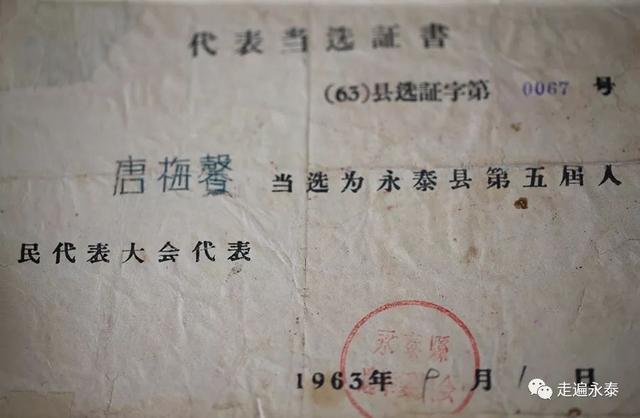 代表当选証書
(63)县选証字第 0067 号
唐梅馨 当选为永泰县第五届人
民代表大会代表
永泰縣
1963年9月1日
走遍永泰